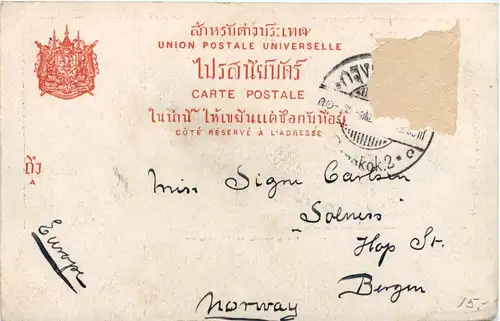 สำหรับต่างประเทศ
UNION POSTALE UNIVERSELLE
ไปรสนิยบัตร์
CARTE POSTALE
ในน่านี้ ให้เขียนแต่ชื่อกับที่อยู่
CÔTÉ RÉSERVÉ À L'ADRESSE
kok.2
ถึง
A
Miss Signe Carlsen
"Solness"
Hop St.
Bergen
Norway
Europe
15.-